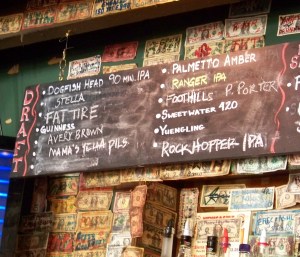 DRAFT
DOGFISH HEAD 90 MIN. IPA
STELLA
FAT TIRE
GUINNESS
AVERY BROWN
MAMA'S YELLA PILS.
PALMETTO AMBER
RANGER IPA
FOOTHILLS P. PORTER
SWEETWATER 420
YUENGLING
ROCKHOPPER IPA